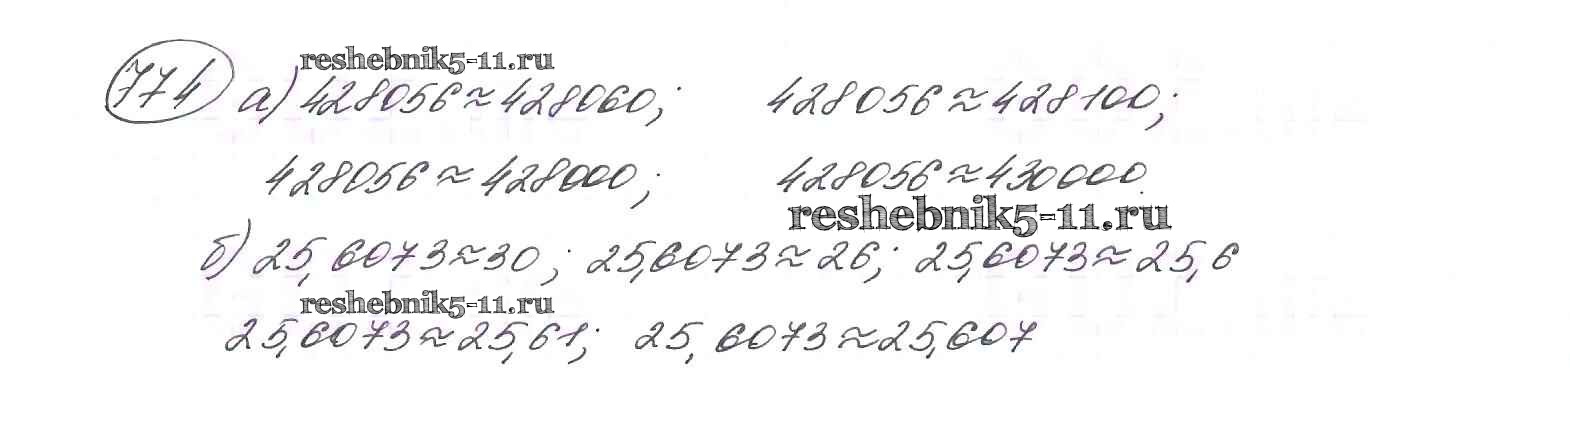 reshebnik5-11.ru
774 а) 428056≈428060; 428056≈428100;
428056≈428000; 428056≈430000
reshebnik5-11.ru
б) 25,6073≈30; 25,6073≈26; 25,6073≈25,6
reshebnik5-11.ru
25,6073≈25,61; 25,6073≈25,607